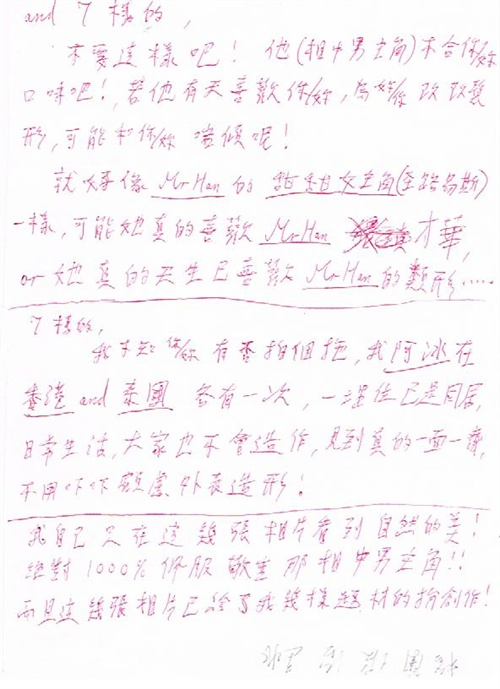 and 7 樣的,
不要這樣吧! 他(相中男主角)不合你/妳
口味吧! 若他有天喜歡你/妳, 為妳/你改改髮
形, 可能和你/妳 啱傾呢!
就好像 Mr Han 的 甜甜女主角(至路易斯)
一樣, 可能她真的喜歡 Mr Han 才華,
or 她真的天生已喜歡 Mr Han 的類形.....
7 樣的,
我不知你/妳有否拍個拖, 我阿冰在
香港 and 泰國 各有一次, 一埋位已是同居,
日常生活, 大家也不會造作, 見到真的一面一齊,
不用吓吓顧慮外表造形!
我自己只在這幾張相片看到自然的美!
絕對 1000% 佩服 敬重 那相中男主角!!
而且這幾張相片已給了我幾樣題材的新創作!